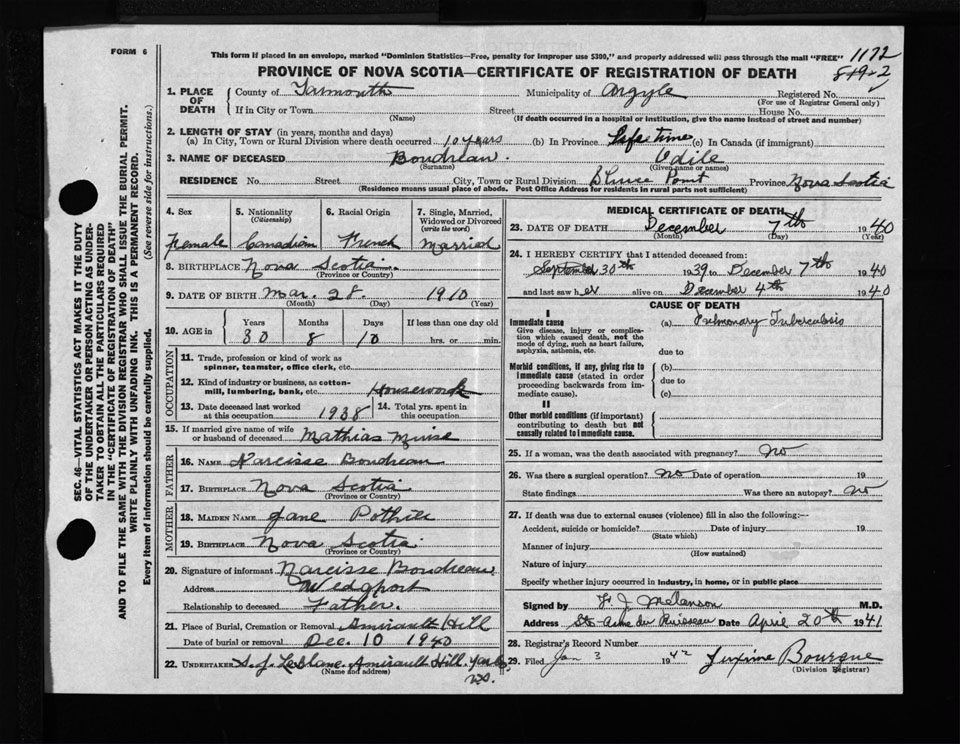 FORM 6
This form if placed in an envelope, marked "Dominion Statistics—Free, penalty for improper use $300," and properly addressed will pass through the mail "FREE" 1172
PROVINCE OF NOVA SCOTIA—CERTIFICATE OF REGISTRATION OF DEATH
1. PLACE OF DEATH County of Yarmouth Municipality of Argyle Registered No.
(For use of Registrar General only)
If in City or Town Street House No.
(Name) (If death occurred in a hospital or institution, give the name instead of street and number)
2. LENGTH OF STAY (in years, months and days)
(a) In City, Town or Rural Division where death occurred 10 years (b) In Province Life time (c) In Canada (if immigrant)
3. NAME OF DECEASED Boudreau. Odile
(Surname) (Given name or names)
RESIDENCE No. Street City, Town or Rural Division Point Province Nova Scotia
(Residence means usual place of abode. Post Office Address for residents in rural parts not sufficient)
SEC. 46—VITAL STATISTICS ACT MAKES IT THE DUTY
OF THE UNDERTAKER OR PERSON ACTING AS UNDER-
TAKER TO OBTAIN ALL THE PARTICULARS REQUIRED
IN THE "CERTIFICATE OF REGISTRATION OF DEATH"
AND TO FILE THE SAME WITH THE DIVISION REGISTRAR WHO SHALL ISSUE THE BURIAL PERMIT.
WRITE PLAINLY WITH UNFADING INK. THIS IS A PERMANENT RECORD.
Every item of information should be carefully supplied. (See reverse side for instructions.)
4. Sex 5. Nationality (Citizenship) 6. Racial Origin 7. Single, Married, Widowed or Divorced (write the word)
Female Canadian French Married
8. BIRTHPLACE Nova Scotia.
(Province or Country)
9. DATE OF BIRTH Mar. 28. 1910
(Month) (Day) (Year)
10. AGE in Years Months Days If less than one day old
30 8 10 hrs. or min.
OCCUPATION
11. Trade, profession or kind of work as
spinner, teamster, office clerk, etc.
12. Kind of industry or business, as cotton-
mill, lumbering, bank, etc. Housework
13. Date deceased last worked at this occupation 1938 14. Total yrs. spent in this occupation
15. If married give name of wife
or husband of deceased Mathias Muise
FATHER
16. NAME Narcisse Boudreau
17. BIRTHPLACE Nova Scotia
(Province or Country)
MOTHER
18. MAIDEN NAME Jane
19. BIRTHPLACE Nova Scotia
(Province or Country)
20. Signature of informant Narcisse Boudreau
Address Wedgeport
Relationship to deceased Father.
21. Place of Burial, Cremation or Removal Amirault Hill
Date of burial or removal Dec. 10 1940
22. UNDERTAKER S. J. LeBlanc. Amirault Hill. Yar Co.
(Name and address)
N.S.
MEDICAL CERTIFICATE OF DEATH
23. DATE OF DEATH December 7th 1940
(Month) (Day) (Year)
24. I HEREBY CERTIFY that I attended deceased from:
September 30th 1939 to December 7th 1940
and last saw her alive on December 4th 1940
CAUSE OF DEATH
I
Immediate cause (a) Pulmonary Tuberculosis
Give disease, injury or complica-
tion which caused death, not the
mode of dying, such as heart failure,
asphyxia, asthenia, etc. due to
Morbid conditions, if any, giving rise to (b)
immediate cause (stated in order due to
proceeding backwards from im-
mediate cause). (c)
II
Other morbid conditions (if important)
contributing to death but not
causally related to immediate cause.
25. If a woman, was the death associated with pregnancy? No
26. Was there a surgical operation? No Date of operation 19
State findings Was there an autopsy? No
27. If death was due to external causes (violence) fill in also the following:—
Accident, suicide or homicide? Date of injury 19
(State which)
Manner of injury
(How sustained)
Nature of injury
Specify whether injury occurred in industry, in home, or in public place
Signed by F. J. Melanson M.D.
Address Ste-Anne du Ruisseau Date April 20th 1941
28. Registrar's Record Number
29. Filed Jan 3 1942 Bourque
(Division Registrar)